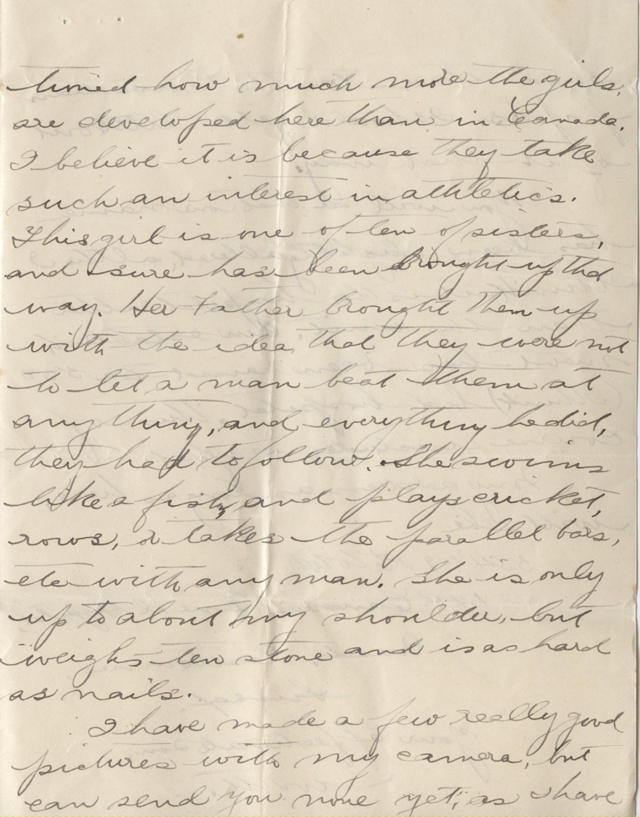 tioned how much more the girls
are developed here than in Canada.
I believe it is because they take
such an interest in athletics.
This girl is one of ten of sisters,
and sure has been brought up that
way. Her Father brought them up
with the idea that they were not
to let a man beat them at
anything, and everything he did,
they had to follow. She swims
like a fish, and plays cricket,
rows, & takes the parallel bars,
etc with any man. She is only
up to about my shoulder, but
weighs ten stone and is as hard
as nails.
I have made a few really good
pictures with my camera, but
can send you none yet, as I have